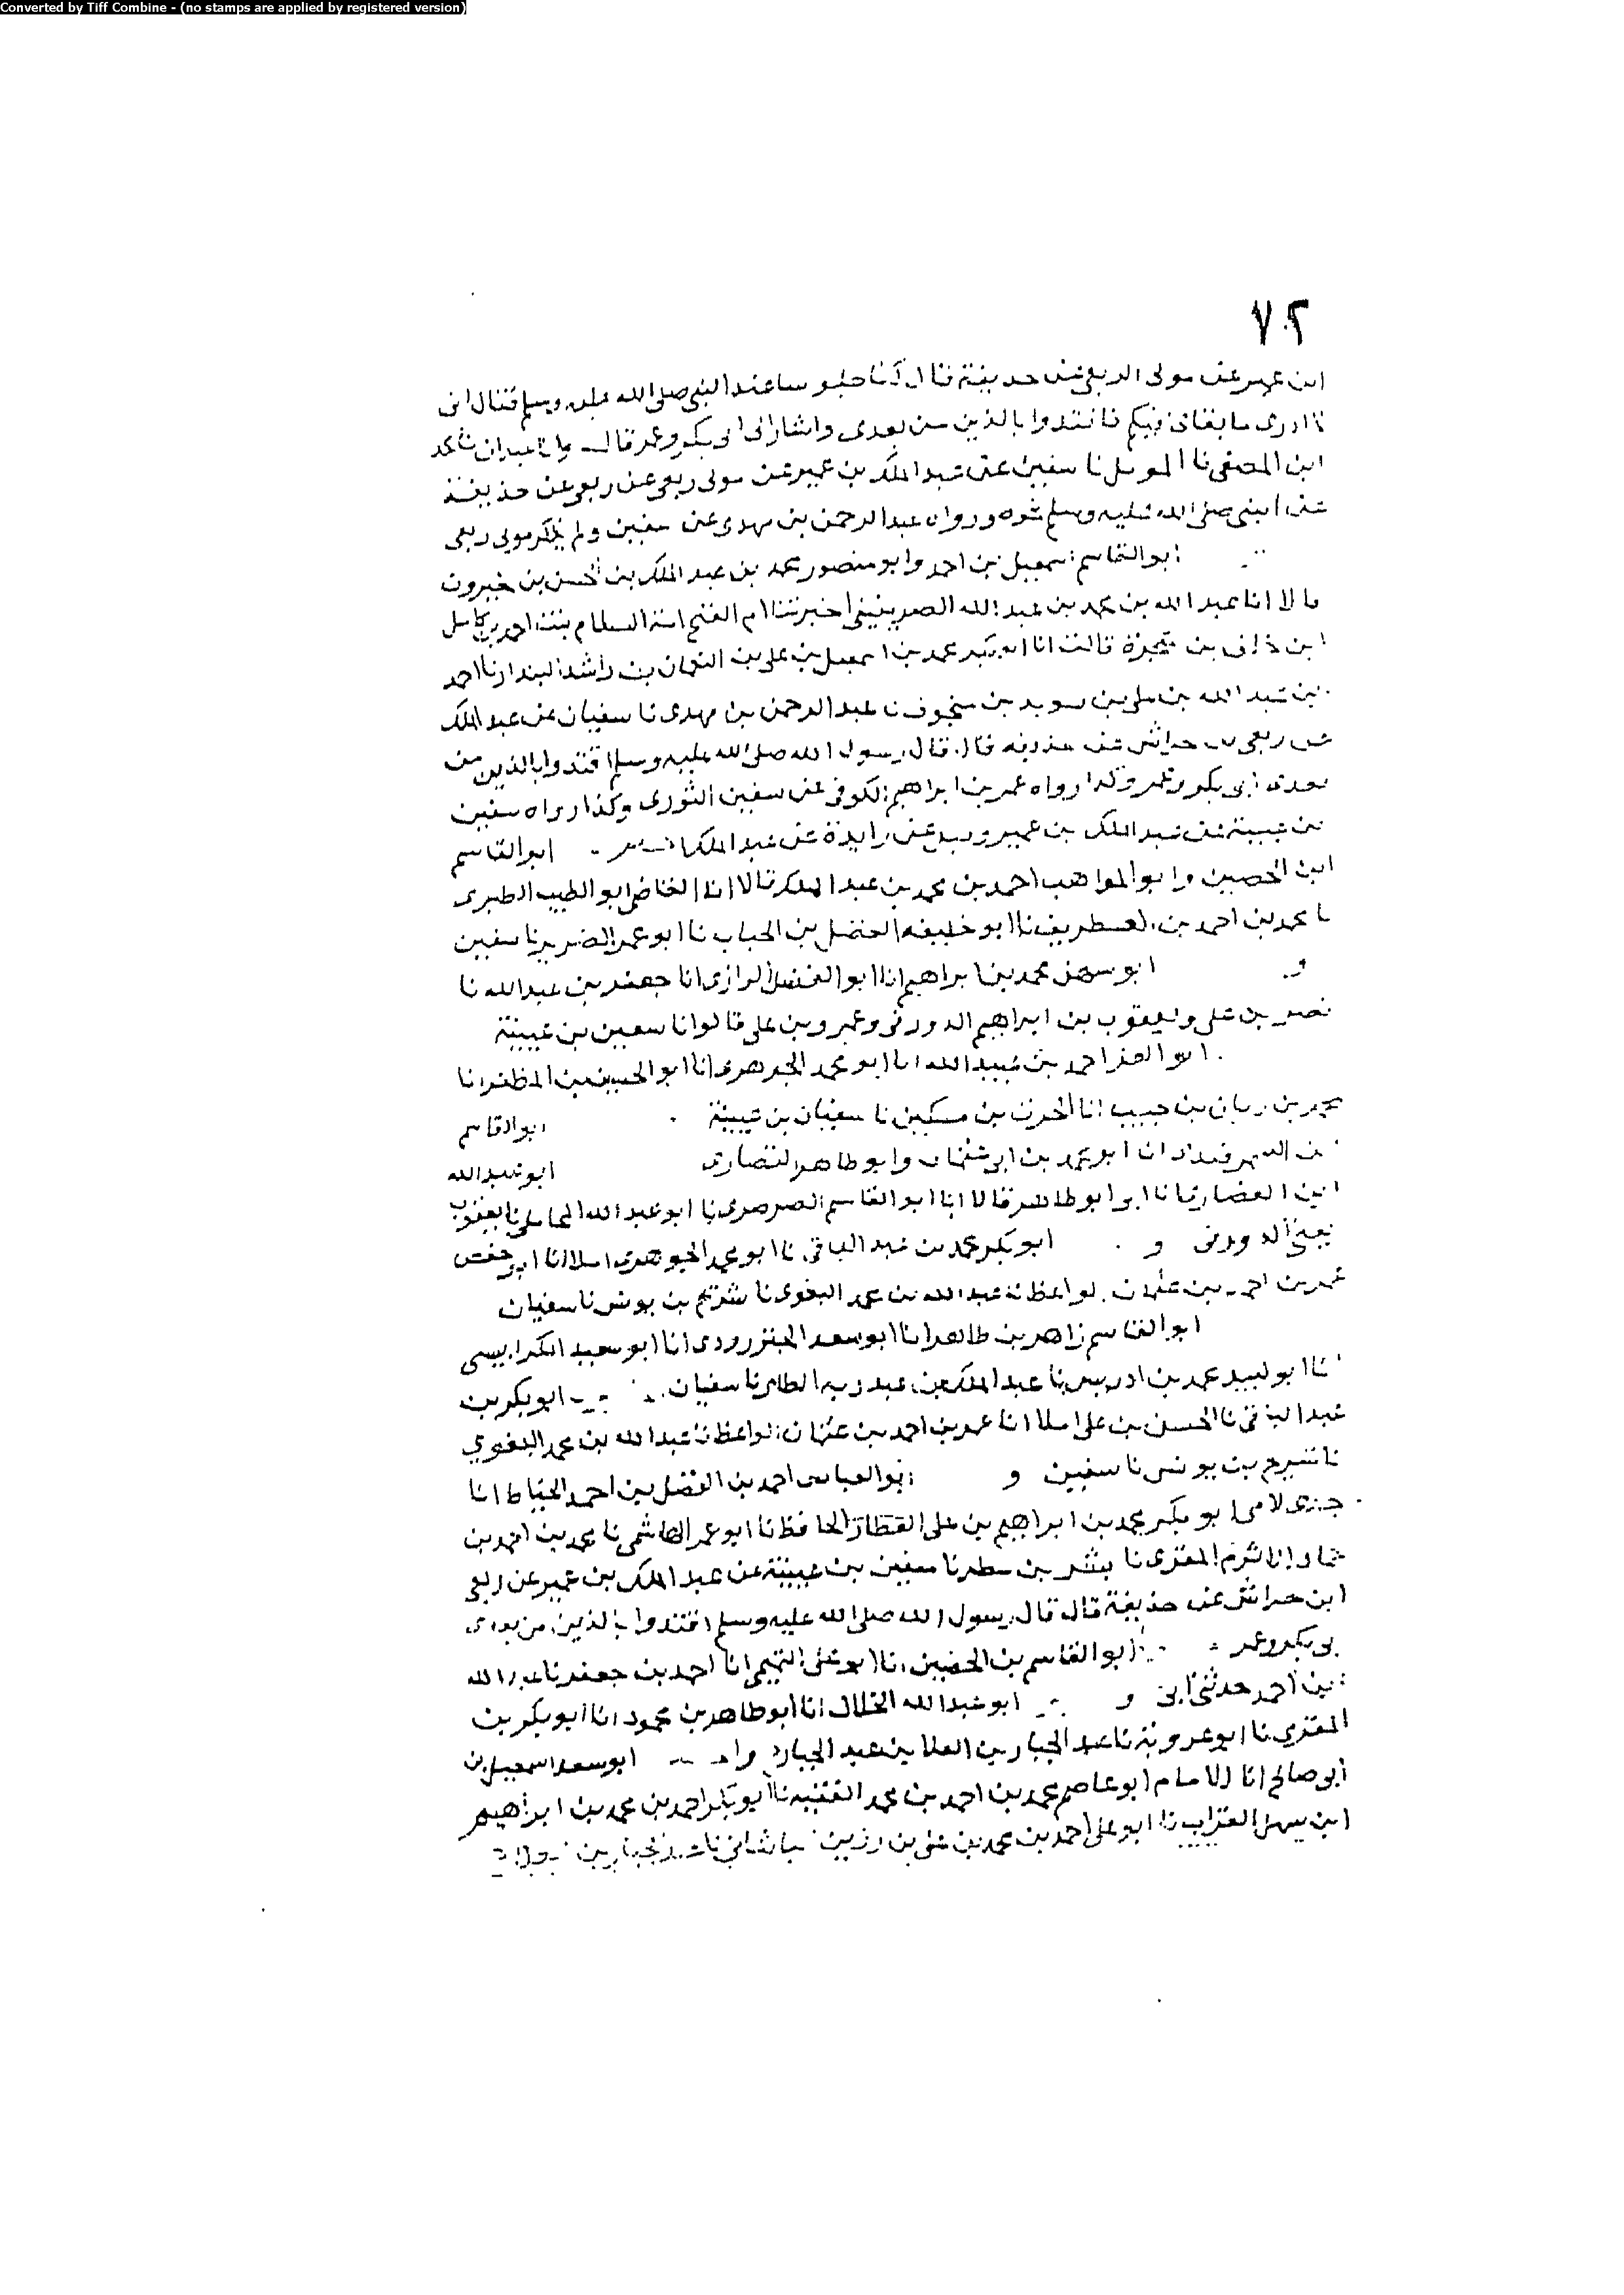 Converted by Tiff Combine - (no stamps are applied by registered version)
٧٢
ابن عمير عن مولى الربعي عن حذيفة قال كنا جلوسا عند النبي صلى الله عليه وسلم فقال اني
لا ادرى ما بقائى فيكم فاقتدوا بالذين من بعدى واشار الى ابى بكر وعمر قال
ابن المصفى نا المومل نا سفين عن عبد الملك بن عمير عن مولى ربعى عن ربعى عن حذيفة
عن النبي صلى الله عليه وسلم نحوه ورواه عبد الرحمن بن مهدى عن سفين ولم يذكر مولى ربعى
ابو القاسم اسمعيل بن احمد وابو منصور محمد بن عبد الملك بن الحسن بن خيرون
قالا انا عبد الله بن محمد بن عبد الله الصريفيني اخبرتنا ام الفتح امة السلام بنت احمد بن كامل
ابن خلف بن شجرة قالت انا ابو بكر محمد بن اسمعيل بن على بن النعمان بن راشد البندار نا احمد
بن عبد الله بن على بن سويد بن منجوف نا عبد الرحمن بن مهدى نا سفيان عن عبد الملك
عن ربعى بن حراش عن حذيفه قال قال رسول الله صلى الله عليه وسلم اقتدوا بالذين من
بعدى ابى بكر وعمر وكذا رواه عمر بن ابراهيم الكوفى عن سفين الثورى وكذا رواه سفين
بن عيينة عن عبد الملك بن عمير وربما عن زايدة عن عبد الملك ابو القاسم
ابن الحصين وابو المواهب احمد بن محمد بن عبد الملك قالا انا القاضى ابو الطيب الطبرى
نا محمد بن احمد بن الغطريف نا ابو خليفه الفضل بن الحباب نا ابو عمر الضرير نا سفين
و ابو سهل محمد بن ابراهيم انا ابو الفضل الرازى انا جعفر بن عبد الله نا
نصر بن على ويعقوب بن ابراهيم الدورقى وعمرو بن على قالوا نا سفين بن عيينة
ابو العز احمد بن عبيد الله انا ابو محمد الجوهرى انا ابو الحسين بن المظفر نا
محمد بن زبان بن حبيب انا الحرث بن مسكين نا سفيان بن عيينة ابو القاسم
بن السمرقندى انا ابو محمد بن ابى عثمان وابو طاهر القصارى ابو عبد الله
ابن القصارى انا ابى ابو طاهر قالا انا ابو القاسم الصرصرى نا ابو عبد الله المحاملى نا يعقوب
يعنى الدورقى و ابو بكر محمد بن عبد الباقى نا ابو محمد الجوهرى املا انا ابو حفص
عمر بن احمد بن عثمان الواعظ نا عبد الله بن محمد البغوى نا شريح بن يونس نا سفيان
ابو القاسم زاهر بن طاهر انا ابو سعد الجنزرودى انا ابو سعيد الكرابيسى
انا ابو لبيد محمد بن ادريس نا عبد الملك بن عبد ربه الطائى نا سفيان ابو بكر بن
عبد الباقى نا الحسن بن على املا انا عمر بن احمد بن عثمان الواعظ نا عبد الله بن محمد البغوي
نا شريح بن يونس نا سفيين و ابو العباس احمد بن الفضل بن احمد الخياط انا
جدى لامى ابو بكر محمد بن ابراهيم بن على القطان الحافظ نا ابو عمر الهاشمى نا محمد بن احمد بن
حماد الاثرم المقرى نا بشر بن مطر نا سفين بن عيينة عن عبد الملك بن عمير عن ربعى
ابن حراش عن حذيفة قال قال رسول الله صلى الله عليه وسلم اقتدوا بالذين من بعدى
ابى بكر وعمر ابو القاسم بن الحصين انا ابو على التميمى انا احمد بن جعفر نا عبد الله
بن احمد حدثنى ابى و ابو عبد الله الخلال انا ابو طاهر بن محمود انا ابو بكر بن
المقرى نا ابو عروبة نا عبد الجبار بن العلا بن عبد الجبار ابو سعد اسمعيل بن
ابى صالح انا الامام ابو عاصم محمد بن احمد بن محمد الفقيه نا ابو بكر احمد بن محمد بن ابراهيم
ابن سهل القراب نا ابو على احمد بن محمد بن على بن رزين